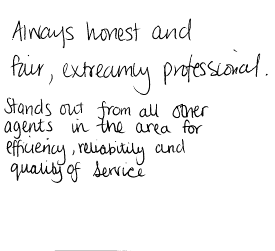 Always honest and
fair, extreamly professional.
Stands out from all other
agents in the area for
efficiency, reliability and
quality of service